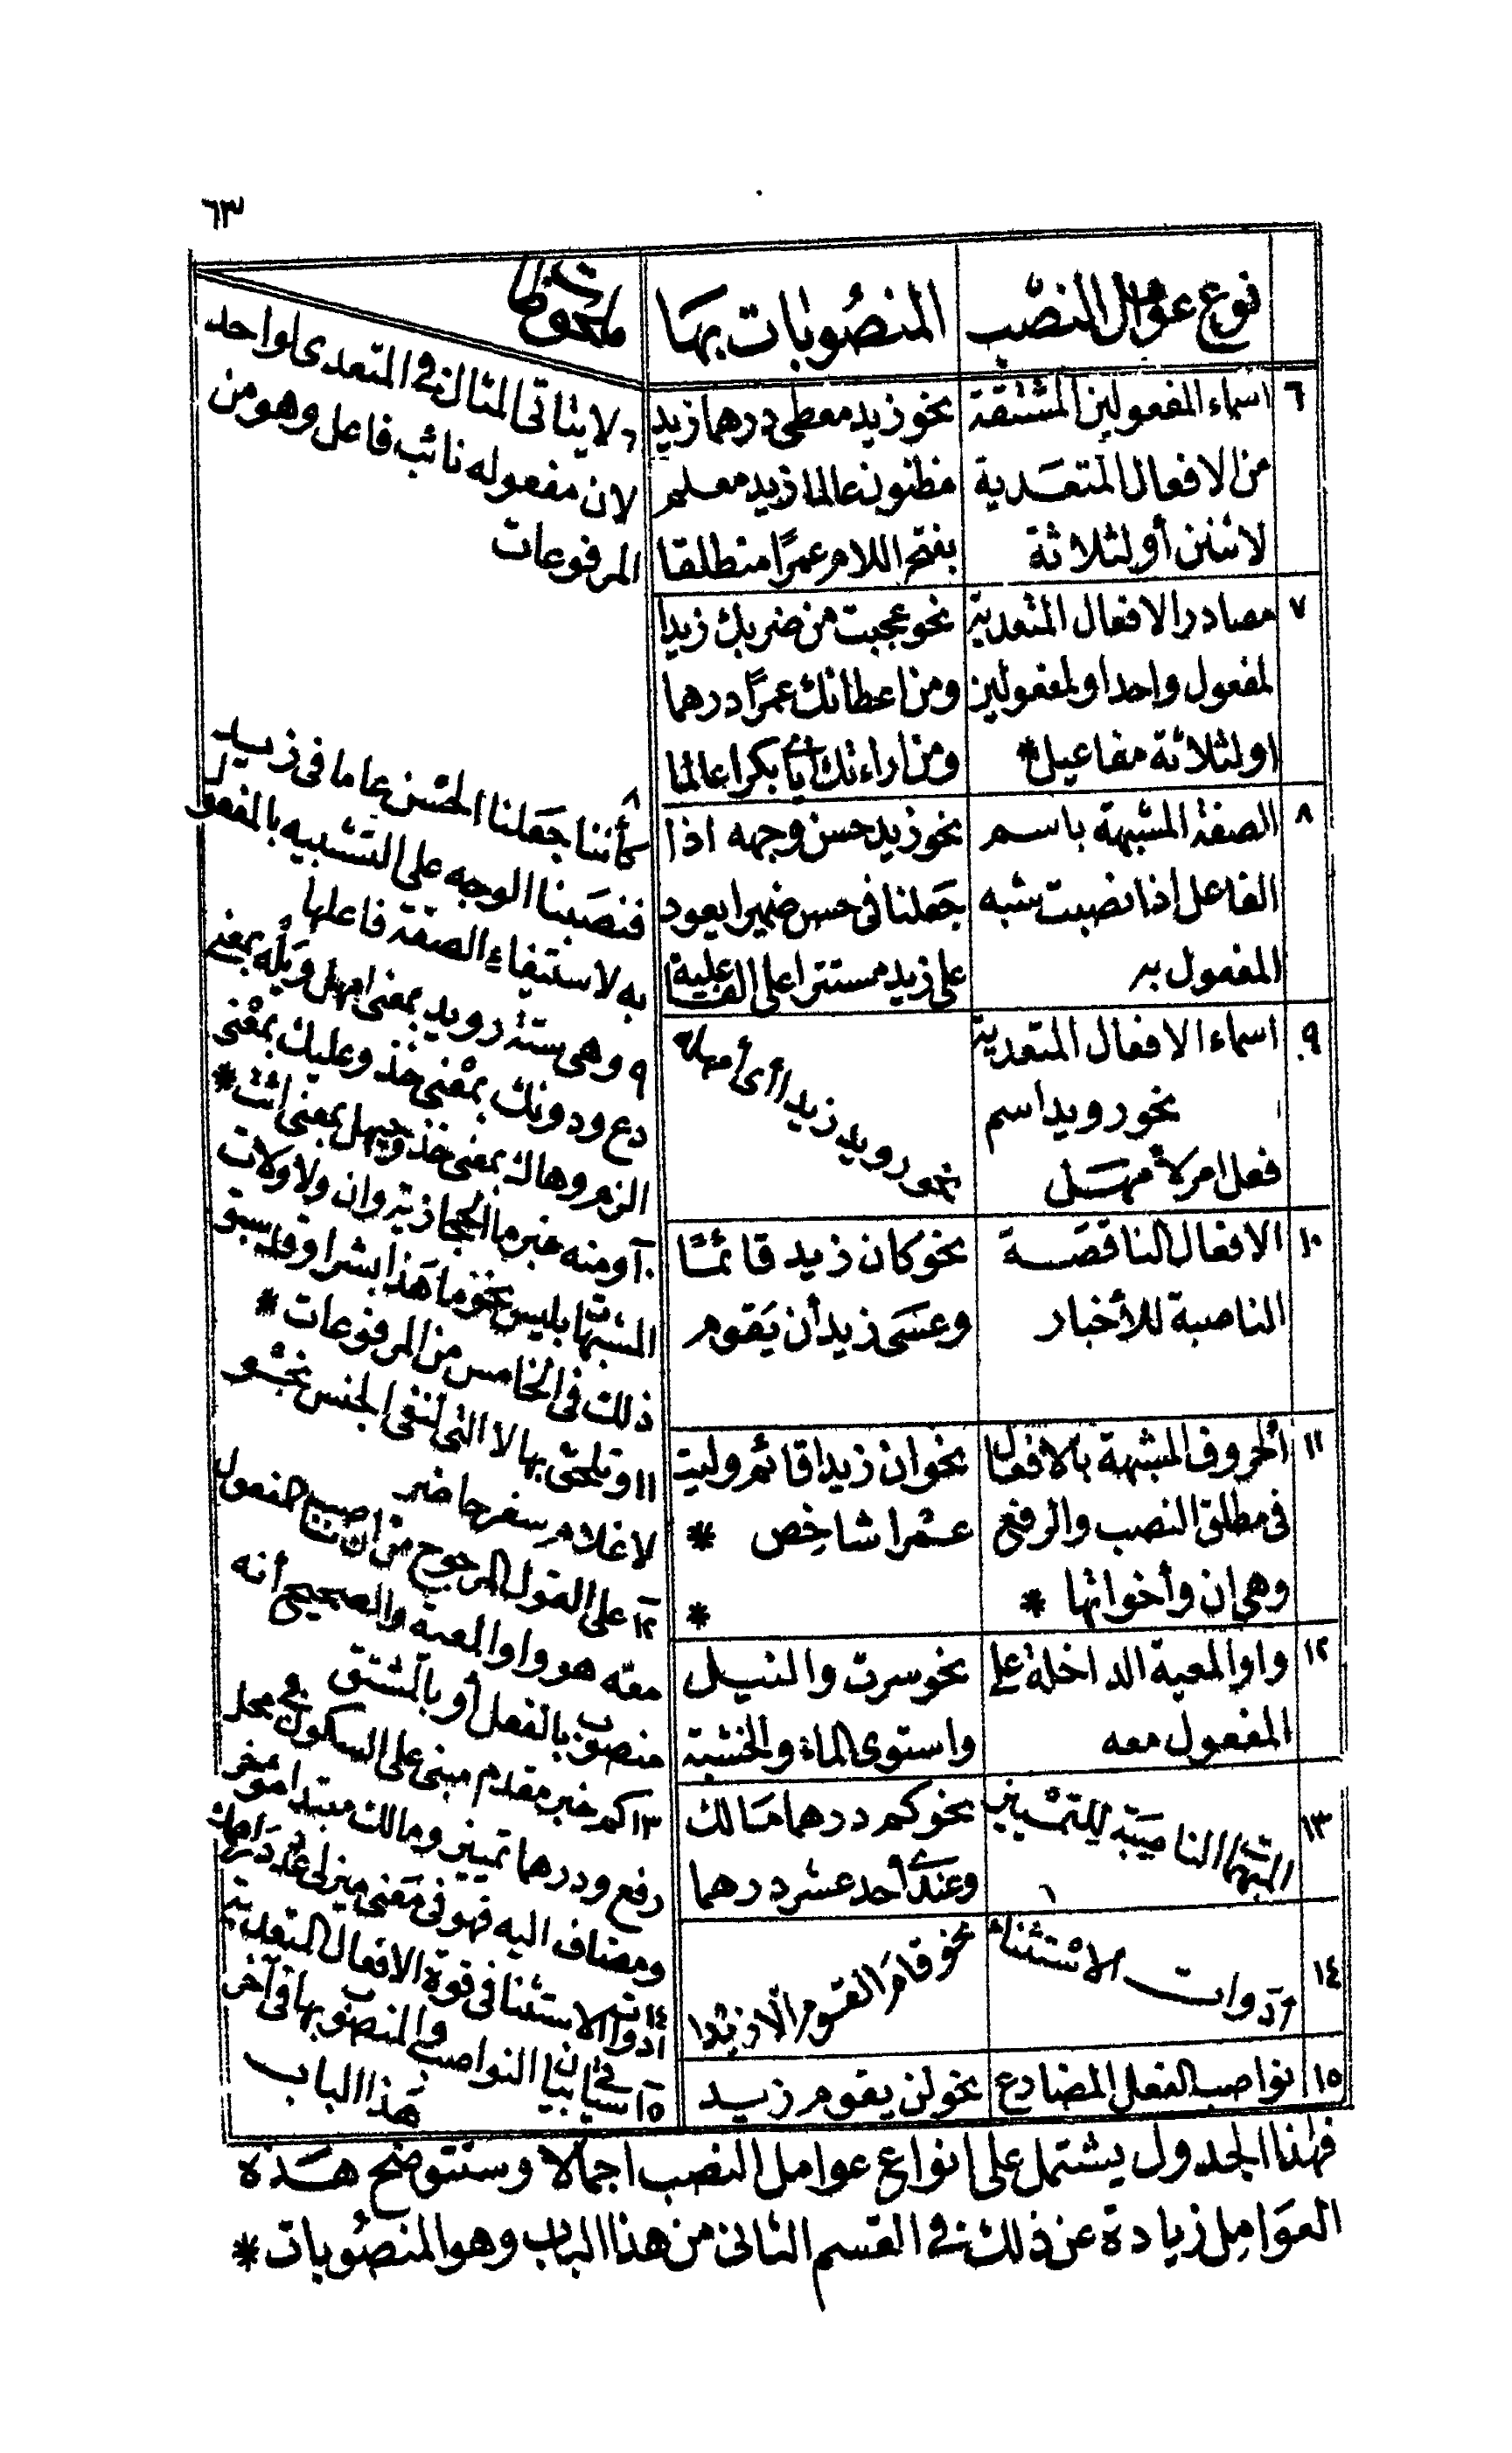 ٦٣
نوع عوامل النصب
المنصوبات بها
ملحوظات
٦
اسماء المفعولين المشتقة
من الافعال المتعدية
لاثنين أو لثلاثة
نحو زيد معطى درهما زيد
مظنون عالما زيد معلم
بفتح اللام عمرًا منطلقا
٦ لا يتاتى المثال فى المتعدى لواحد
لان مفعوله نائب فاعل وهو من
المرفوعات
٧
مصادر الافعال المتعدية
لمفعول واحد او لمفعولين
او لثلاثة مفاعيل *
نحو عجبت من ضربك زيدا
ومن اعطائك عمرًا درهما
ومن اراءتك أيا بكرا عالما
٨
الصفة المشبهة باسم
الفاعل اذا نصبت شبه
المفعول به
نحو زيد حسن وجهه اذا
جعلنا فى حسن ضميرا يعود
على زيد مستترا على الفاعلية
٨ كأننا جعلنا الحسن عاما فى زيد
فنصبنا الوجه على التشبيه بالمفعول
به لاستيفاء الصفة فاعلها
٩
اسماء الافعال المتعدية
نحو رويد اسم
فعل امر لأمهل
نحو رويد زيدا أى أمهله
٩ وهى ستة رويد بمعنى امهل وبله بمعنى
دع ودونك بمعنى خذ وعليك بمعنى
الزم وهاك بمعنى خذ وحيهل بمعنى ائت *
١٠
الافعال الناقصة
الناصبة للأخبار
نحو كان زيد قائما
وعسى زيد أن يقوم
١٠ ومنه خبر ما الحجازية وان ولا ولات
المشبهات بليس نحو ما هذا بشرا وقد سبق
ذلك فى الخامس من المرفوعات *
١١
الحروف المشبهة بالافعال
فى مطلق النصب والرفع
وهى ان وأخواتها *
نحو ان زيدا قائم وليت
عمرا شاخص *
*
١١ وتلحق بها لا التى لنفى الجنس نحو
لا غلام سفر حاضر
١٢
واو المعية الداخلة على
المفعول معه
نحو سرت والنيل
واستوى الماء والخشبة
١٢ على القول المرجوح من أن ناصب المفعول
معه هو واو المعية والصحيح أنه
منصوب بالفعل أو بالمشتق
١٣
المبهمات الناصبة للتمييز
نحو كم درهما مالك
وعندى أحد عشر درهما
١٣ كم خبر مقدم مبنى على السكون فى محل
رفع ودرهما تمييز ومالك مبتدا مؤخر
ومضاف اليه فهو فى معنى
١٤
أدوات الاستثناء
نحو قام القوم الا زيدا
١٤ أدوات الاستثناء فى قوة الافعال المتعدية
١٥
نواصب الفعل المضارع
نحو لن يقوم زيد
١٥ سيأتى بيان النواصب والمنصوب بها فى آخر
هذا الباب
فهذا الجدول يشتمل على انواع عوامل النصب اجمالا وسنتوضح هذه
العوامل زيادة عن ذلك فى القسم الثانى من هذا الباب وهو المنصوبات *